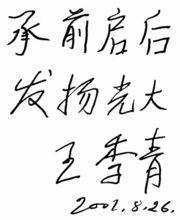 承前启后
发扬光大
王季青
2001.8.26.